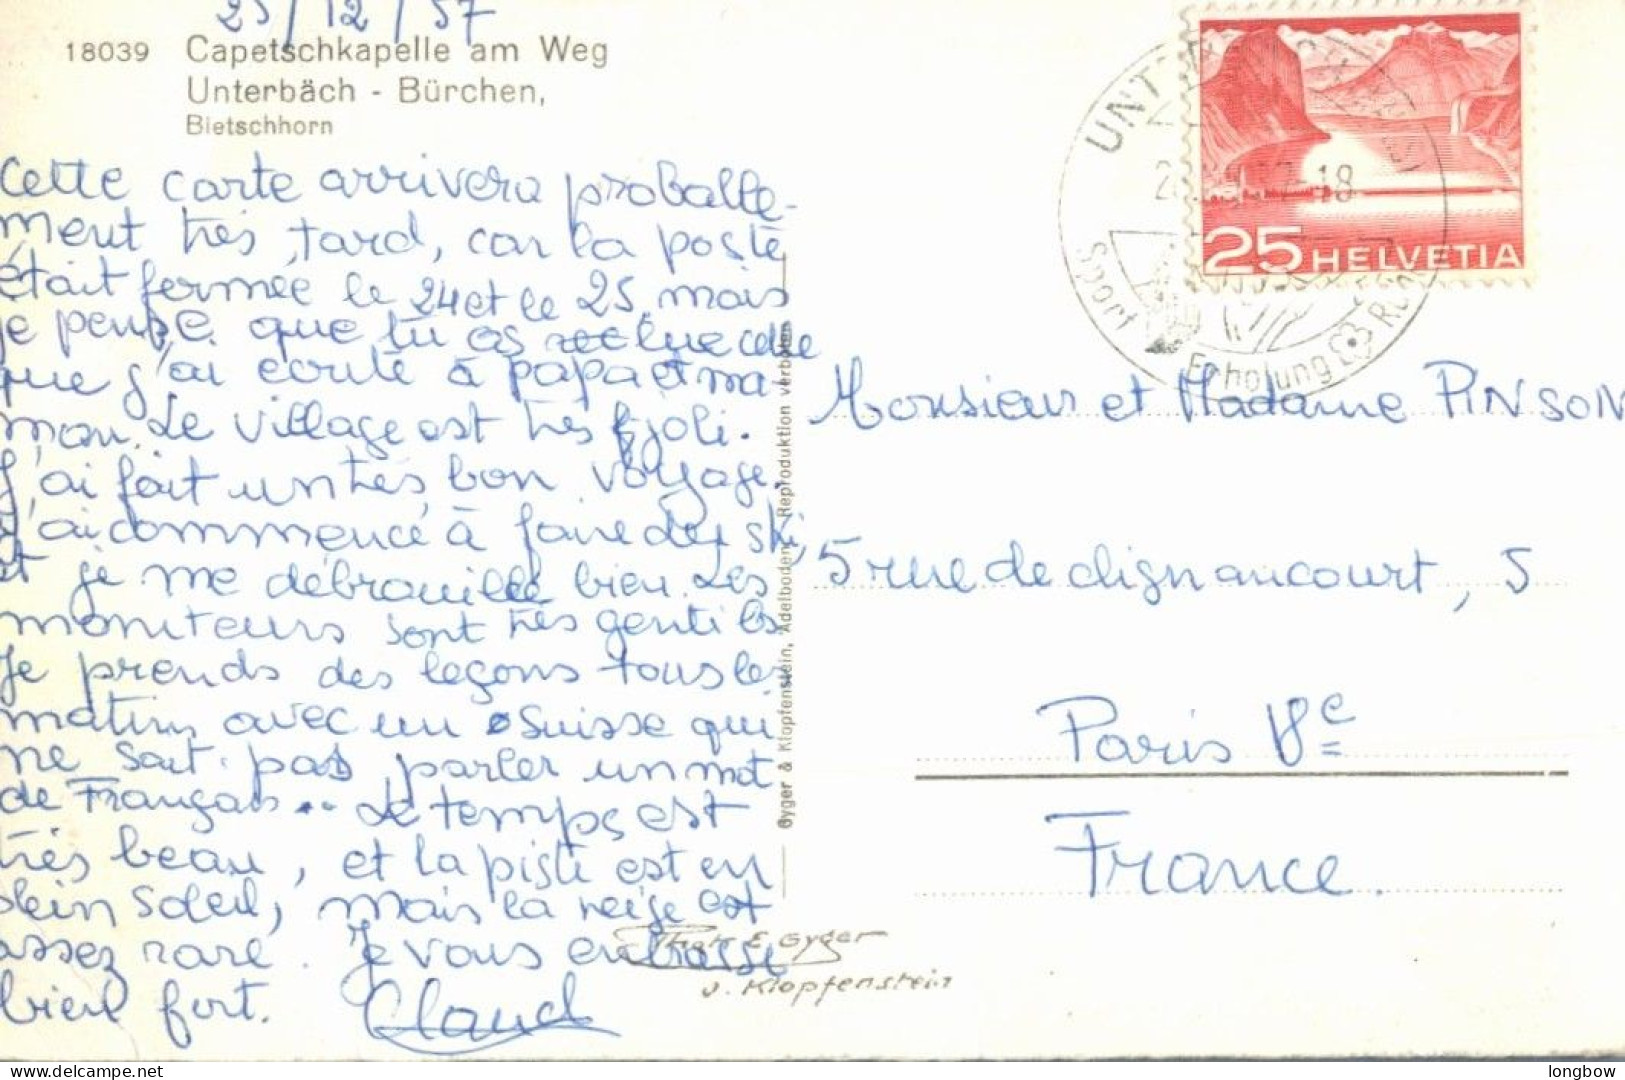 25/12/57
18039 Capetschkapelle am Weg
Unterbäch - Bürchen,
Bietschhorn
Cette carte arrivera probable-
ment très tard, car la poste
était fermée le 24 et le 25, mais
je pense que tu as reçue celle
que j'ai écrite à papa et ma-
man. Le village est très joli.
J'ai fait un très bon voyage.
J'ai commencé à faire du ski,
et je me débrouille bien. Les
moniteurs sont très gentils
Je prends des leçons tous les
matins avec un Suisse qui
ne sait pas parler un mot
de Français... Le temps est
très beau, et la piste est en
plein soleil, mais la neige est
assez rare. Je vous embrasse
bien fort. Claud
Gyger & Klopfenstein, Adelboden, Reproduktion verboten
Phot E. Gyger
u. Klopfenstein
25 HELVETIA
UNT
-18
Sport Erholung
Monsieur et Madame PINSON
5 rue de clignancourt, 5
Paris
France.
longbow